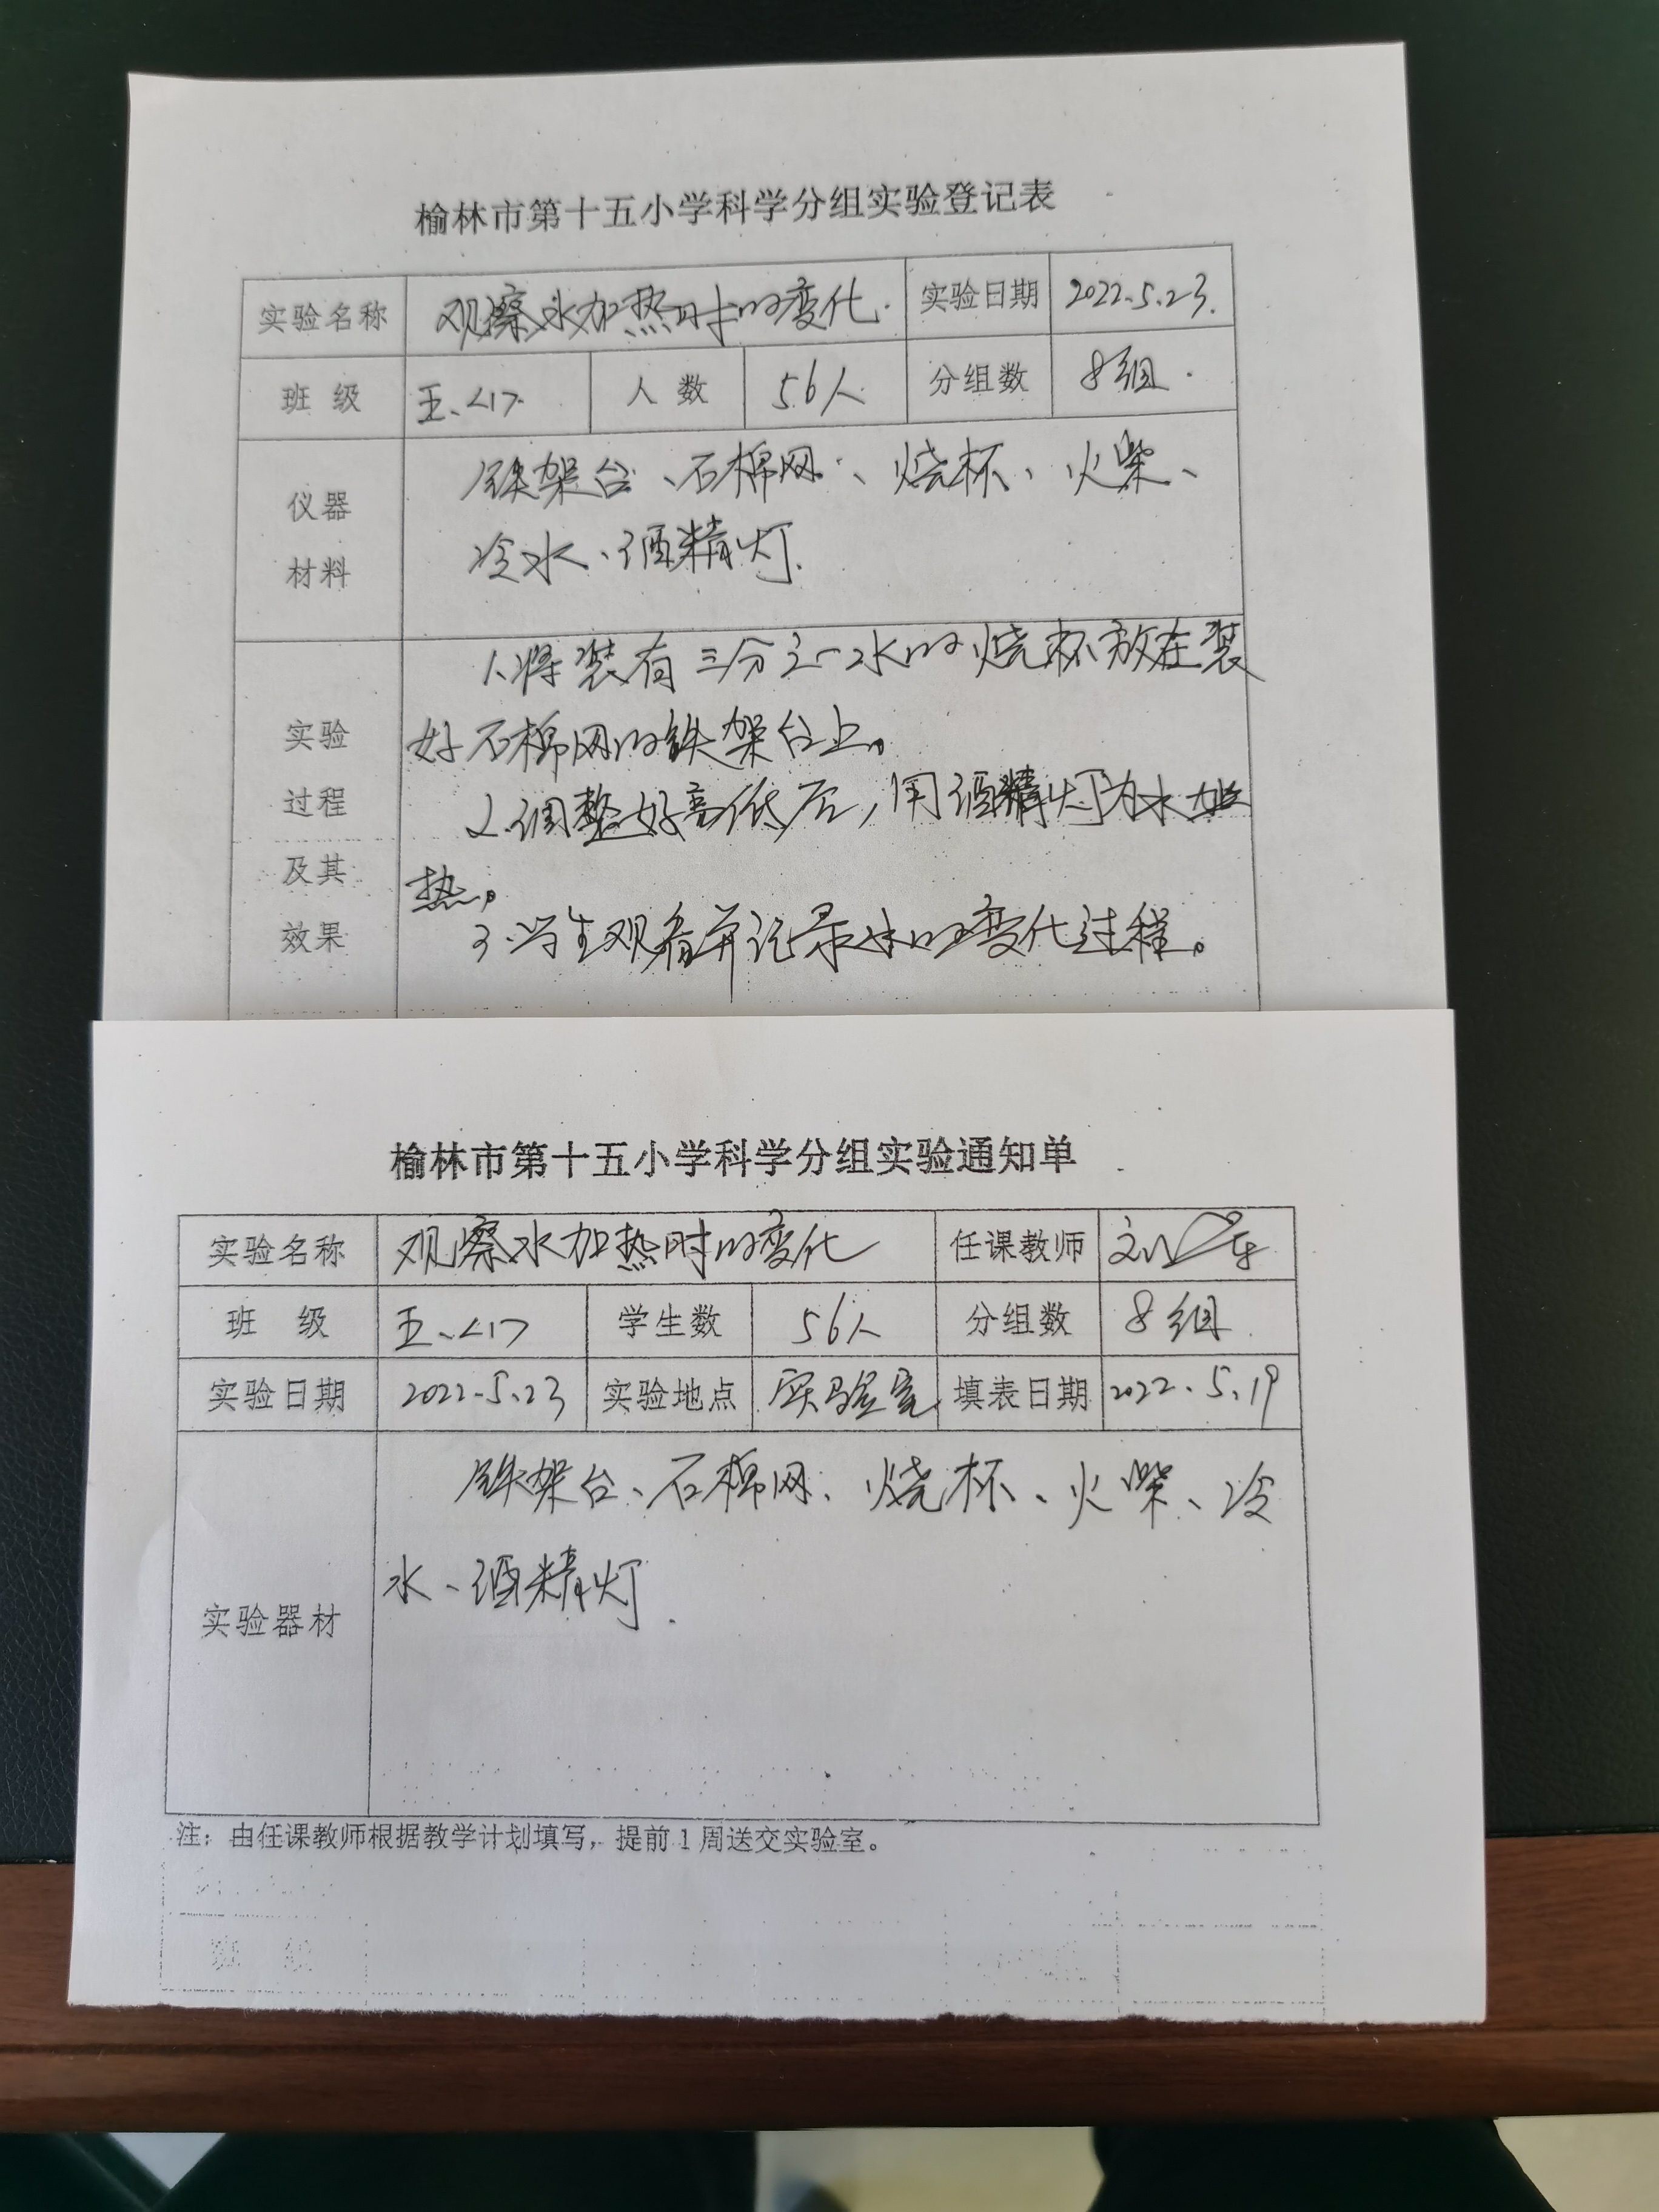 榆林市第十五小学科学分组实验登记表
实验名称 观察水加热时的变化. 实验日期 2022.5.23.
班 级 五、<1> 人 数 56人 分组数 8组.
仪器 铁架台、石棉网、烧杯、火柴、
材料 冷水、酒精灯.
1.将装有三分之一水的烧杯放在装
实验 好石棉网的铁架台上。
过程 2.调整好高低后,用酒精灯为水加
及其 热。
效果 3.学生观看并记录水的变化过程。
榆林市第十五小学科学分组实验通知单
实验名称 观察水加热时的变化 任课教师
班 级 五、<1> 学生数 56人 分组数 8组.
实验日期 2022.5.23 实验地点 实验室 填表日期 2022.5.19
铁架台、石棉网、烧杯、火柴、冷
水、酒精灯.
实验器材
注:由任课教师根据教学计划填写,提前1周送交实验室。
班 级